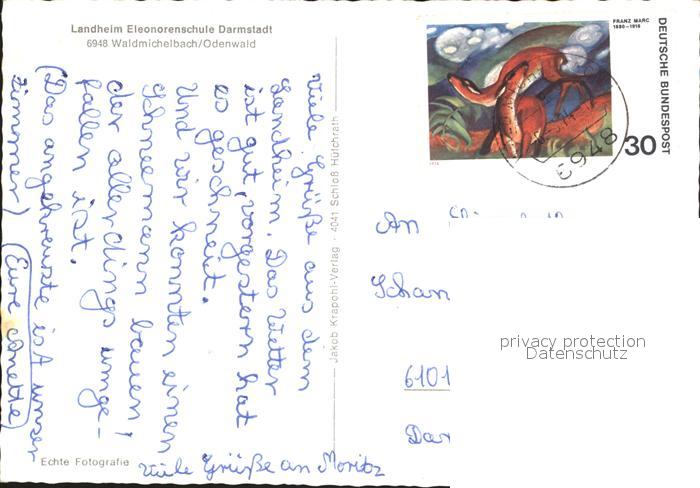 Landheim Eleonorenschule Darmstadt
6948 Waldmichelbach/Odenwald
Viele Grüße aus dem
Landheim. Das Wetter
ist gut, vorgestern hat
es geschneit.
Und wir konnten einen
Schneemann bauen!
der allerdings umge-
fallen ist.
(Das angekreuzte ist unser
Zimmer) (Eure Anette)
Viele Grüße an Moritz
Echte Fotografie
Jakob Krapohl-Verlag · 4041 Schloß Hülchrath
FRANZ MARC
1880–1916
DEUTSCHE BUNDESPOST
30
1974
6948
An
Schan
6101
Dar
privacy protection
Datenschutz